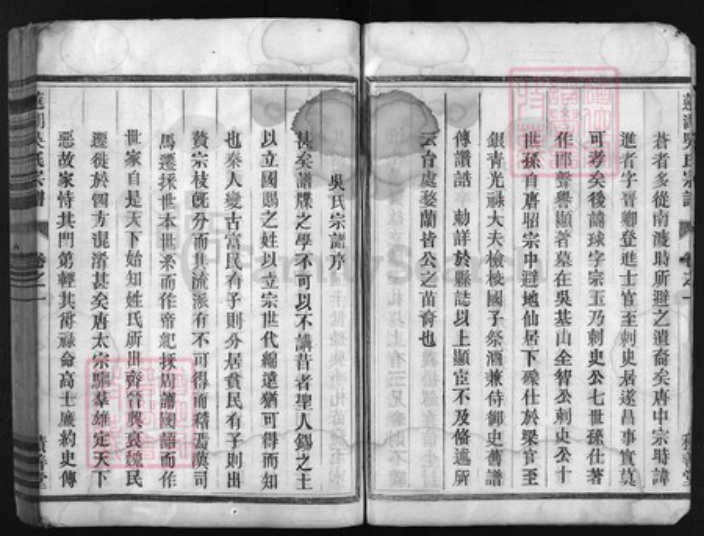 蒼者多從南渡時所避之遺裔矣唐中宗時諱
進者字晉卿登進士官至刺史居遂昌事實莫
可考矣後諱球字宗玉乃刺史公七世孫仕著
作郎聲譽顯著墓在吳基山全智公刺史公十
世孫自唐昭宗中避地仙居下礫仕於梁官至
銀青光祿大夫檢校國子祭酒兼侍御史舊譜
傳讚誥 勅詳於縣誌以上顯宦不及俻述所
云台處婺蘭皆公之苗裔也
積善堂
吳氏宗譜序
甚矣譜牒之學不可以不講昔者聖人錫之土
以立國賜之姓以立宗世代緜遠猶可得而知
也秦人變古富民有子則分居貧民有子則出
贅宗枝旣分而其流派有不可得而稽焉漢司
馬遷採世本世系而作帝紀採周譜國語而作
世家自是天下始知姓氏所出齊晉興衰魏民
遷徙於四方混淆甚矣唐太宗驅羣雄定天下
惡故家恃其門第輕其爵祿命高士廉約史傳
吳氏宗譜 卷之一
積善堂
FamilySearch